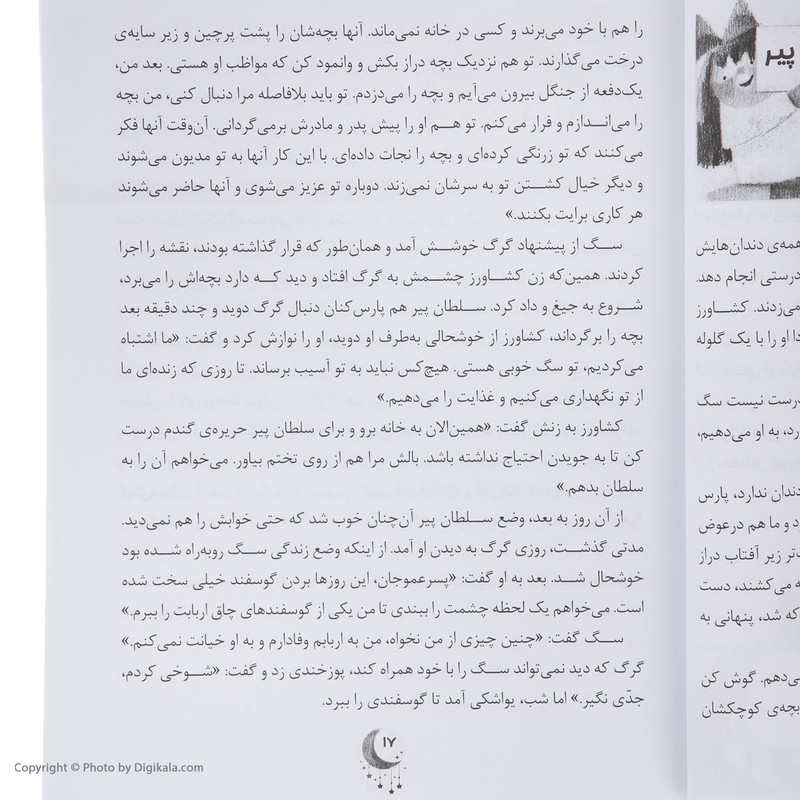 پیر
همه‌ی دندان‌هایش
درستی انجام دهد.
می‌زدند. کشـــاورز
دا او را با یک گلوله
درست نیست سگ
رد، به او می‌دهیم،
دندان ندارد، پارس
د و ما هم درعوض
‌تر زیر آفتاب دراز
ه می‌کشند، دست
که شد، پنهانی به
ی‌دهم. گوش کن
بچه‌ی کوچکشان
را هم با خود می‌برند و کسی در خانه نمی‌ماند. آنها بچه‌شان را پشت پرچین و زیر سایه‌ی
درخت می‌گذارند. تو هم نزدیک بچه دراز بکش و وانمود کن که مواظب او هستی. بعد من،
یک‌دفعه از جنگل بیرون می‌آیم و بچه را می‌دزدم. تو باید بلافاصله مرا دنبال کنی، من بچه
را می‌انـــدازم و فرار می‌کنم. تو هـــم او را پیش پدر و مادرش برمی‌گردانی. آن‌وقت آنها فکر
می‌کنند که تو زرنگی کرده‌ای و بچه را نجات داده‌ای. با این کار آنها به تو مدیون می‌شوند
و دیگر خیال کشـــتن تو به سرشان نمی‌زند. دوباره تو عزیز می‌شوی و آنها حاضر می‌شوند
هر کاری برایت بکنند.»
ســـگ از پیشنهاد گرگ خوشـــش آمد و همان‌طور که قرار گذاشته بودند، نقشه را اجرا
کردند. همین‌که زن کشـــاورز چشـــمش به گرگ افتاد و دید کـــه دارد بچه‌اش را می‌برد،
شـــروع به جیغ و داد کرد. ســـلطان پیر هم پارس‌کنان دنبال گرگ دوید و چند دقیقه بعد
بچه را برگرداند، کشاورز از خوشحالی به‌طرف او دوید، او را نوازش کرد و گفت: «ما اشتباه
می‌کردیم، تو سگ خوبی هستی. هیچ‌کس نباید به تو آسیب برساند. تا روزی که زنده‌ای ما
از تو نگهداری می‌کنیم و غذایت را می‌دهیم.»
کشاورز به زنش گفت: «همین‌الان به خانه برو و برای سلطان پیر حریره‌ی گندم درست
کن تا به جویدن احتیاج نداشته باشد. بالش مرا هم از روی تختم بیاور. می‌خواهم آن را به
سلطان بدهم.»
از آن روز به بعد، وضع ســـلطان پیر آن‌چنان خوب شد که حتی خوابش را هم نمی‌دید.
مدتی گذشـــت، روزی گرگ به دیدن او آمد. از اینکه وضع زندگی ســـگ روبه‌راه شـــده بود
خوشحال شـــد. بعد به او گفت: «پسرعموجان، این روزها بردن گوسفند خیلی سخت شده
است. می‌خواهم یک لحظه چشمت را ببندی تا من یکی از گوسفندهای چاق اربابت را ببرم.»
ســـگ گفت: «چنین چیزی از من نخواه، من به اربابم وفادارم و به او خیانت نمی‌کنم.»
گرگ که دید نمی‌تواند ســـگ را با خود همراه کند، پوزخندی زد و گفت: «شـــوخی کردم،
جدّی نگیر.» اما شب، یواشکی آمد تا گوسفندی را ببرد.
۱۷
Copyright © Photo by Digikala.com